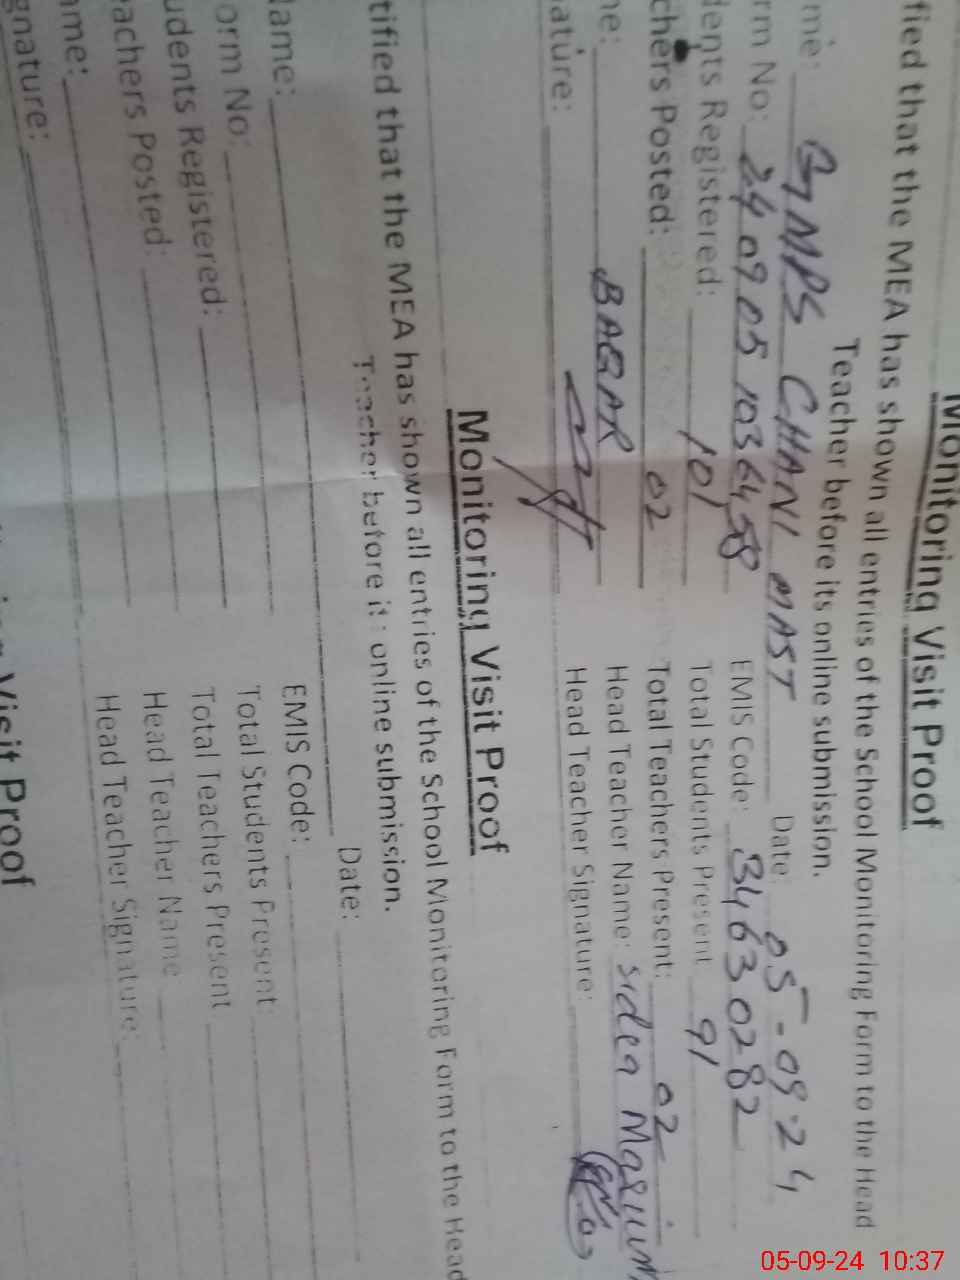 Monitoring Visit Proof
fied that the MEA has shown all entries of the School Monitoring Form to the Head
Teacher before its online submission.
me: GMPS CHANI MAST Date: 05-09-24
rm No: 2409051036458 EMIS Code: 34630282
dents Registered: 101 Total Students Present 91
chers Posted: 02 Total Teachers Present: 02
ne: BABAR Head Teacher Name: Sidea
ature: Head Teacher Signature:
Monitoring Visit Proof
tified that the MEA has shown all entries of the School Monitoring Form to the Head
Teacher before its online submission.
Name: Date:
orm No: EMIS Code:
udents Registered: Total Students Present:
eachers Posted: Total Teachers Present
ame: Head Teacher Name
gnature: Head Teacher Signature:
Visit Proof
05-09-24 10:37